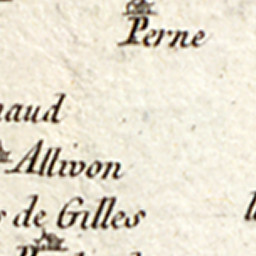 Perne
naud
Allivon
s de Gilles